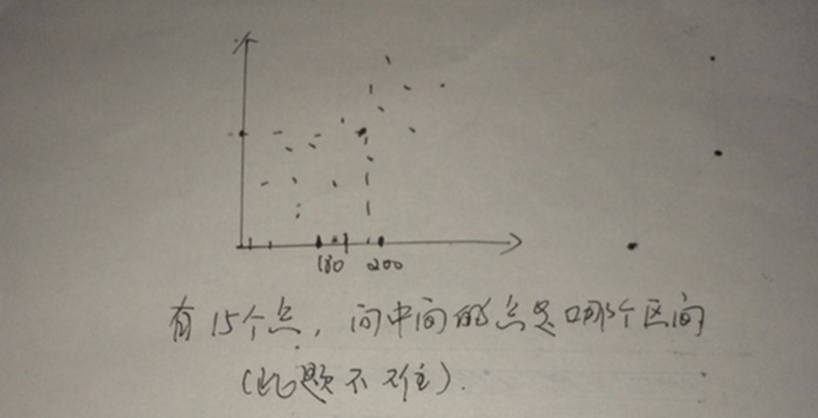 180 200
有15个点，问中间的点是哪个区间
（此题不难）.